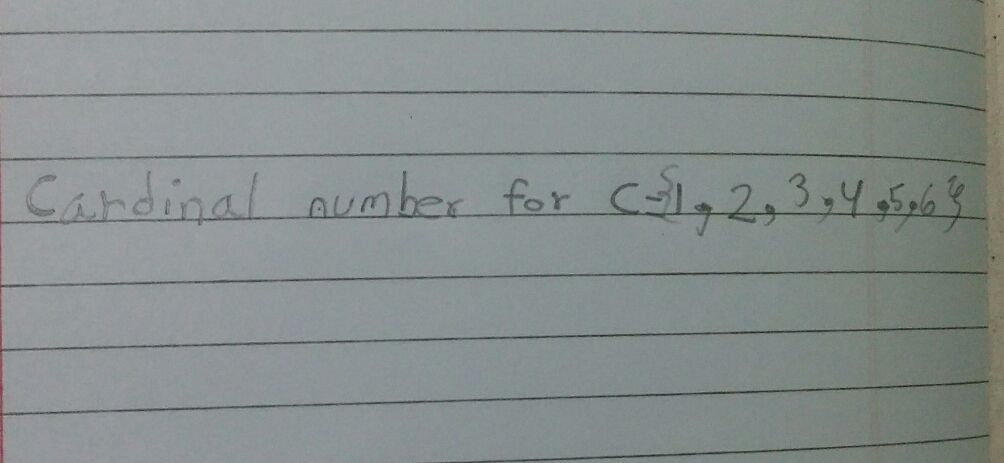 Cardinal number for C={1,2,3,4,5,6}